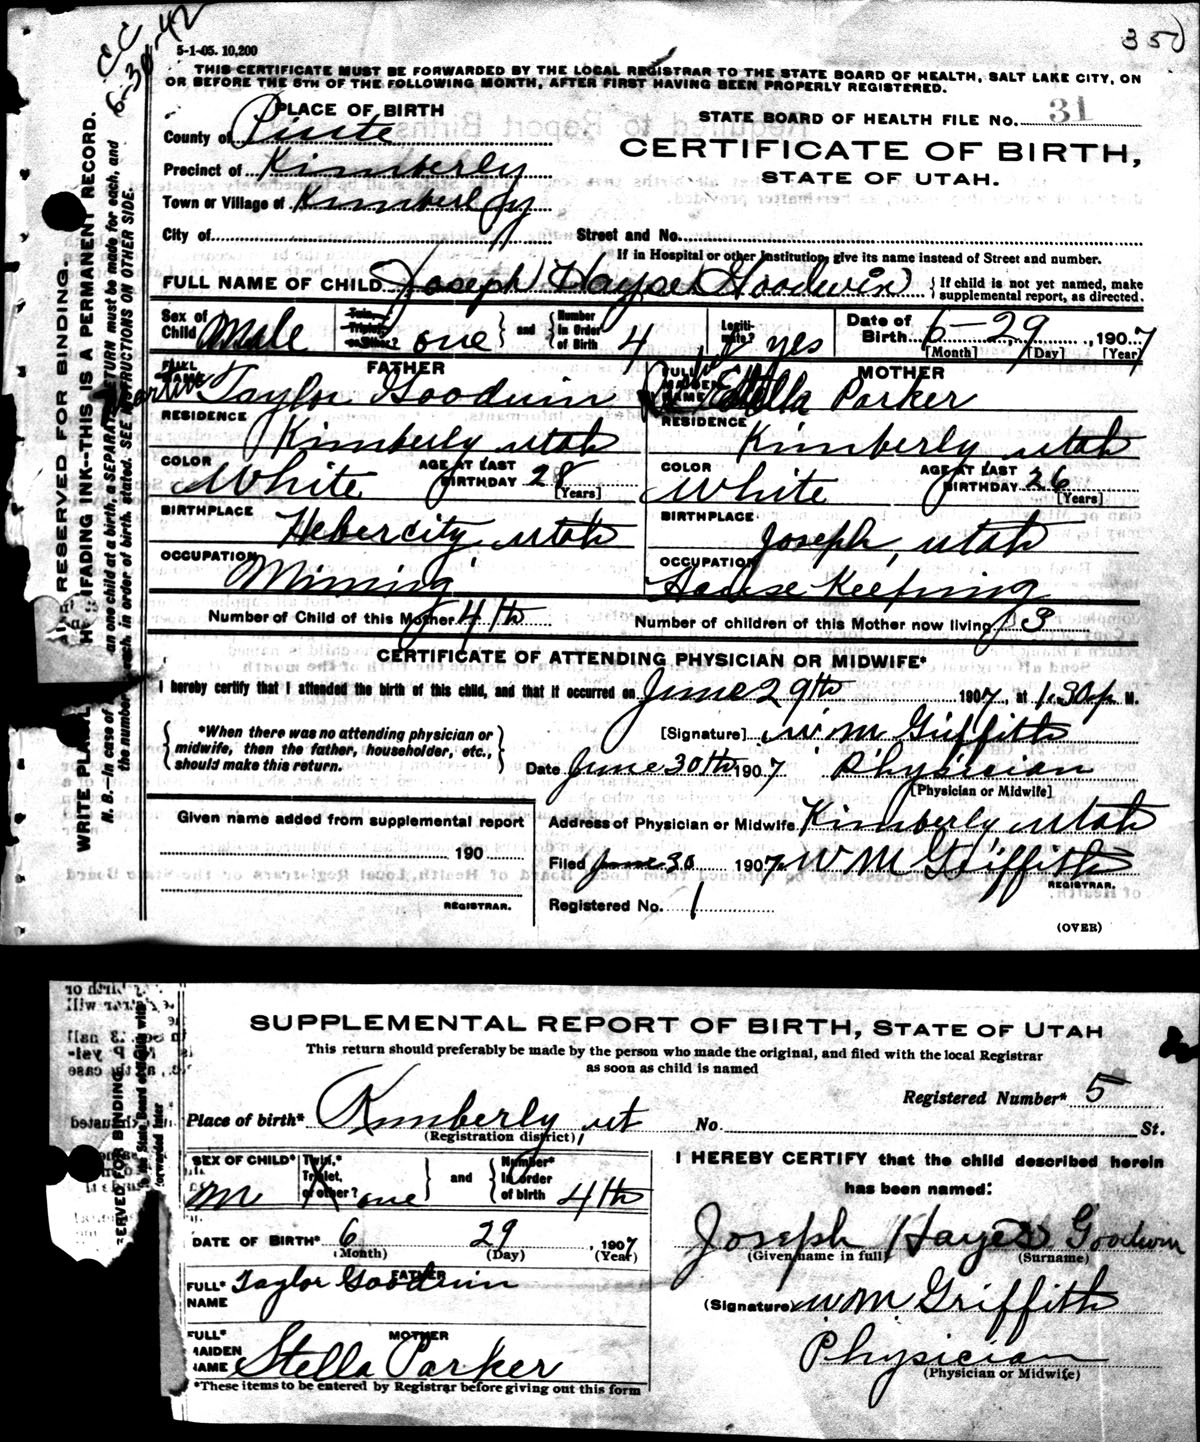 350
E C
6-30-42
5-1-05. 10,200
THIS CERTIFICATE MUST BE FORWARDED BY THE LOCAL REGISTRAR TO THE STATE BOARD OF HEALTH, SALT LAKE CITY, ON
OR BEFORE THE 5TH OF THE FOLLOWING MONTH, AFTER FIRST HAVING BEEN PROPERLY REGISTERED.
PLACE OF BIRTH
STATE BOARD OF HEALTH FILE No. 31
County of Piute
CERTIFICATE OF BIRTH,
STATE OF UTAH.
Precinct of Kimberly
Town or Village of Kimberly
City of
Street and No.
If in Hospital or other Institution, give its name instead of Street and number.
FULL NAME OF CHILD Joseph Hayes Goodwin
If child is not yet named, make
supplemental report, as directed.
Sex of Child Male
Twin, Triplet, or Other? one
and
Number in Order of Birth 4
Legitimate? yes
Date of Birth 6-29, 1907
[Month] [Day] [Year]
FULL NAME
FATHER
Taylor Goodwin
RESIDENCE
Kimberly utah
COLOR White
AGE AT LAST BIRTHDAY 28
[Years]
BIRTHPLACE
Hebercity, utah
OCCUPATION
Mining
FULL MAIDEN NAME
MOTHER
Stella Parker
RESIDENCE
Kimberly utah
COLOR White
AGE AT LAST BIRTHDAY 26
[Years]
BIRTHPLACE
Joseph, utah
OCCUPATION
House Keeping
Number of Child of this Mother 4th
Number of children of this Mother now living 3
CERTIFICATE OF ATTENDING PHYSICIAN OR MIDWIFE*
I hereby certify that I attended the birth of this child, and that it occurred on June 29th 1907, at 1:30 p M.
*When there was no attending physician or
midwife, then the father, householder, etc.,
should make this return.
[Signature] W M Griffith
Date June 30th 1907 Physician
[Physician or Midwife]
Given name added from supplemental report
190
REGISTRAR.
Address of Physician or Midwife Kimberly utah
Filed June 30 1907 W M Griffith
REGISTRAR.
Registered No. 1
(OVER)
RESERVED FOR BINDING.
WRITE PLAINLY UNFADING INK--THIS IS A PERMANENT RECORD.
N. B.—In case of an one child at a birth, a SEPARATE RETURN must be made for each, and
the number each, in order of birth, stated. SEE INSTRUCTIONS ON OTHER SIDE.
SUPPLEMENTAL REPORT OF BIRTH, STATE OF UTAH
This return should preferably be made by the person who made the original, and filed with the local Registrar
as soon as child is named
Registered Number* 5
Place of birth* Kimberly ut
No. St.
(Registration district)
SEX OF CHILD* M
Twin,* Triplet, or other? one
and
Number* in order of birth 4th
I HEREBY CERTIFY that the child described herein
has been named:
DATE OF BIRTH* 6 29, 1907
(Month) (Day) (Year)
Joseph Hayes Goodwin
(Given name in full) (Surname)
FATHER
FULL* NAME Taylor Goodwin
(Signature) W M Griffith
MOTHER
FULL* MAIDEN NAME Stella Parker
Physician
(Physician or Midwife)
*These items to be entered by Registrar before giving out this form